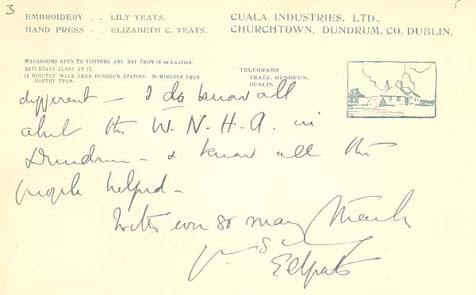 3
EMBROIDERY . . LILY YEATS.
HAND PRESS . . ELIZABETH C. YEATS.
CUALA INDUSTRIES, LTD.,
CHURCHTOWN, DUNDRUM, CO. DUBLIN.
WORKROOMS OPEN TO VISITORS ANY DAY FROM 10 to 5 o'clock.
SATURDAYS CLOSE AT 12.
MINUTES' WALK FROM DUNDRUM STATION. 20 MINUTES FROM
DARTRY TRAM.
TELEGRAMS
YEATS, DUNDRUM,
DUBLIN
different — I do know all
about the W. N. H. A. in
Dundrum — & know all the
people helped —
With ever so many thanks